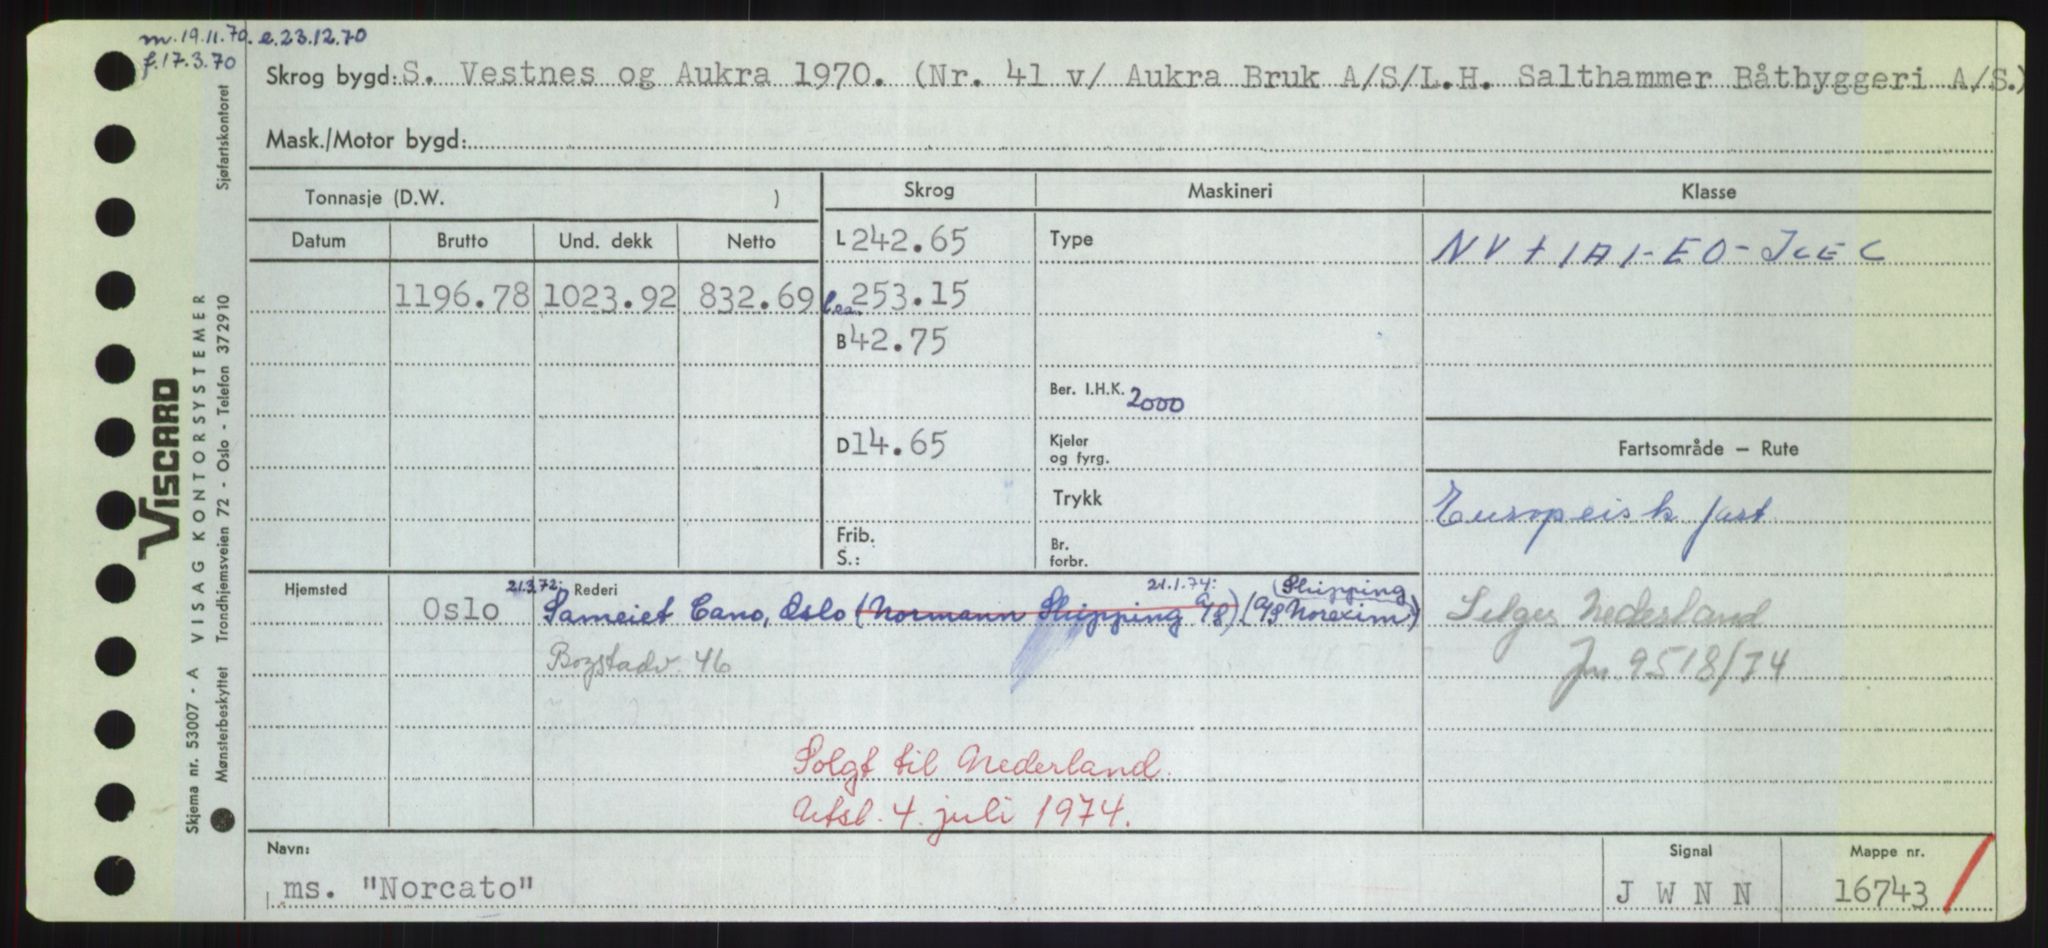 m. 19.11.70. e. 23.12.70
f. 17.3.70
Skrog bygd: S. Vestnes og Aukra 1970. (Nr. 41 v/ Aukra Bruk A/S/L.H. Salthammer Båtbyggeri A/S.)
Mask./Motor bygd:
Tonnasje (D.W. ) Skrog Maskineri Klasse
Datum Brutto Und. dekk Netto L 242.65 Type NV + 1A1-EO-ICE C
1196.78 1023.92 832.69 loa. 253.15
B 42.75
Ber. I.H.K. 2000
D 14.65 Kjeler og fyrg. Fartsområde – Rute
Trykk Europeisk fart
Frib. S.: Br. forbr.
Hjemsted 21.3.72: Rederi 21.1.74: (Shipping
Oslo Sameiet Cano, Oslo (Normann Shipping A/S). (A/S Norexim) Selges Nederland
Bogstadv. 46 Jnr. 9518/74
Solgt til Nederland.
Utsl. 4. juli 1974.
Navn: Signal Mappe nr.
ms. "Norcato" J W N N 16743
VISCARD
Skjema nr. 53007 - A VISAG KONTORSYSTEMER
Mønsterbeskyttet Trondhjemsveien 72 - Oslo - Telefon 372910 Sjøfartskontoret